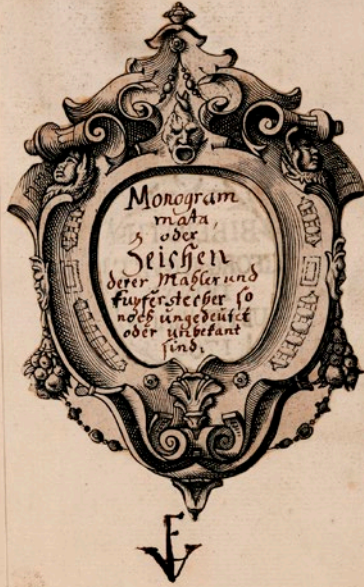 Monogram
mata,
oder
Zeichen
derer Mahler und
kupferstecher so
noch ungedeutet
oder unbekant
sind.